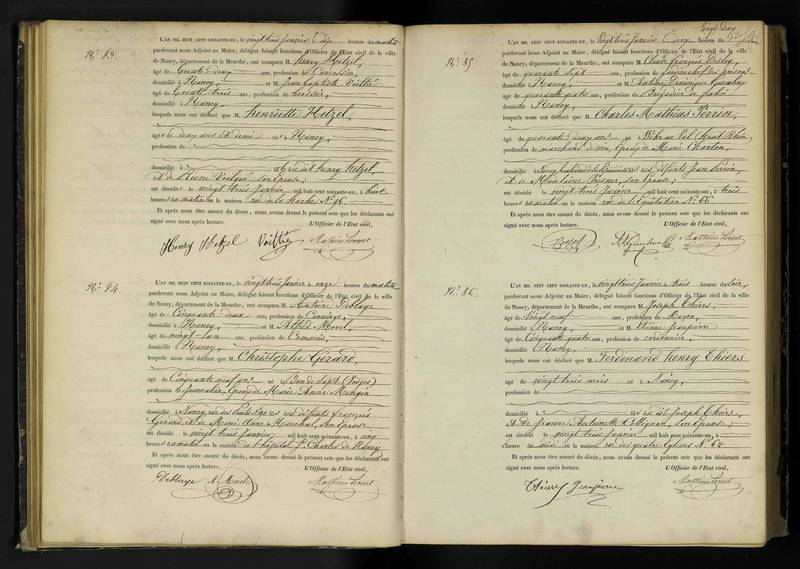 N.° 83.
L'AN MIL HUIT CENT SOIXANTE-UN, le vingt trois Janvier à dix heures du matin
pardevant nous Adjoint au Maire, délégué faisant fonctions d'Officier de l'Etat civil de la ville
de Nancy, département de la Meurthe, ont comparu M. henry Hetzel,
âgé de trente deux ans, profession de
domicilié à Nancy et M. Jean baptiste Voilliè
âgé de trente trois ans, profession de
domicilié à Nancy,
lesquels nous ont déclaré que henriette Hetzel
âgée de deux ans et demi née à Nancy,
profession de
domiciliée à dit henry Hetzel,
et de son épouse,
est décédée le vingt trois Janvier mil huit cent soixante-un, à huit
heures du matin en la maison rue de la hache N.° 96
Et après nous être assuré du décès, nous avons dressé le présent acte que les déclarants ont
signé avec nous après lecture. L'Officier de l'Etat civil,
Henry Hetzel Voilliè
N.° 84.
L'AN MIL HUIT CENT SOIXANTE-UN, le vingt trois Janvier à onze heures du matin
pardevant nous Adjoint au Maire, délégué faisant fonctions d'Officier de l'Etat civil de la ville
de Nancy, département de la Meurthe, ont comparu M. Antoine Deblaye
âgé de Cinquante deux ans, profession de Concierge,
domicilié à Nancy, et M. Alfred Morel,
âgé de vingt-un ans, profession de Commis,
domicilié à Nancy,
lesquels nous ont déclaré que M. Christophe Gérard,
âgé de Cinquante neuf ans né à Ban de Sapt (Vosges)
profession de Journalier, Epoux de Marie Anne Mengin
domicilié à Nancy, fils des défunts françois
Gérard, et de Marie Anne Marchal, son épouse
est décédé le vingt trois Janvier mil huit cent soixante-un, à cinq
heures du matin en la maison de l'hôpital St Charles de Nancy
Et après nous être assuré du décès, nous avons dressé le présent acte que les déclarants ont
signé avec nous après lecture. L'Officier de l'Etat civil,
Deblaye A. Morel
Vingt deux
N.° 85.
L'AN MIL HUIT CENT SOIXANTE-UN, le Vingt trois Janvier à deux heures du soir
pardevant nous Adjoint au Maire, délégué faisant fonctions d'Officier de l'Etat civil de la ville
de Nancy, département de la Meurthe, ont comparu M. Claude François
âgé de quarante sept ans, profession de
domicilié à Nancy et M. Antoine Dominique
âgé de quarante quatre ans, profession de Brigadier de
domicilié à Nancy,
lesquels nous ont déclaré que Charles Mathias Perrin
âgé de quarante deux ans né à (haut Rhin)
profession de marchand de vin, Epoux de Marie Charton,
domicilié à Nancy, fils des défunts Jean Perrin
et de Madelaine son épouse,
est décédé le vingt trois Janvier mil huit cent soixante-un, à trois
heures du matin en la maison rue de l'Equitation N.° 66
Et après nous être assuré du décès, nous avons dressé le présent acte que les déclarants ont
signé avec nous après lecture. L'Officier de l'Etat civil,
N.° 86.
L'AN MIL HUIT CENT SOIXANTE-UN, le vingt trois Janvier à trois heures du soir,
pardevant nous Adjoint au Maire, délégué faisant fonctions d'Officier de l'Etat civil de la ville
de Nancy, département de la Meurthe, ont comparu M. Joseph Thiers,
âgé de Vingt neuf ans, profession de Maçon,
domicilié à Nancy et M. Etienne Jeanpierre
âgé de Cinquante quatre ans, profession de cordonnier,
domicilié à Nancy,
lesquels nous ont déclaré que Ferdinand henry Thiers
âgé de vingt trois mois né à Nancy,
profession de
domicilié à fils du dit Joseph Thiers,
et de Jeanne Antoinette son épouse;
est décédé le vingt trois Janvier mil huit cent soixante-un, à
heures de midi en la maison rue des quatre Eglises N.° 62
Et après nous être assuré du décès, nous avons dressé le présent acte que les déclarants ont
signé avec nous après lecture. L'Officier de l'Etat civil,
Thiers Jeanpierre